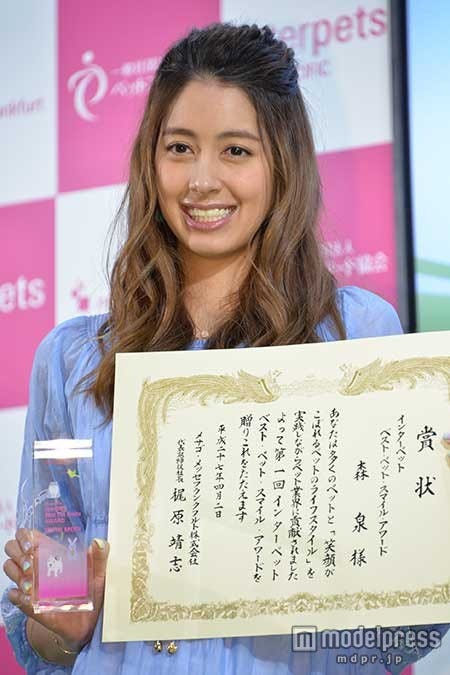 erpets
PACIFIC
一般社団
ペット
ankfurt
pets
人
ード協会
賞状
インターペット
ベスト ペット スマイル アワード
森 泉 様
あなたは多くのペットと「笑顔が
こぼれるペットのライフスタイル」を
実践しながらペット業界に貢献されました
よって第一回インターペット
ベスト ペット スマイル アワードを
贈りこれをたたえます
平成二十七年四月二日
メサゴ・メッセフランクフルト株式会社
代表取締役社長 梶原靖志
AWARD
modelpress
mdpr.jp